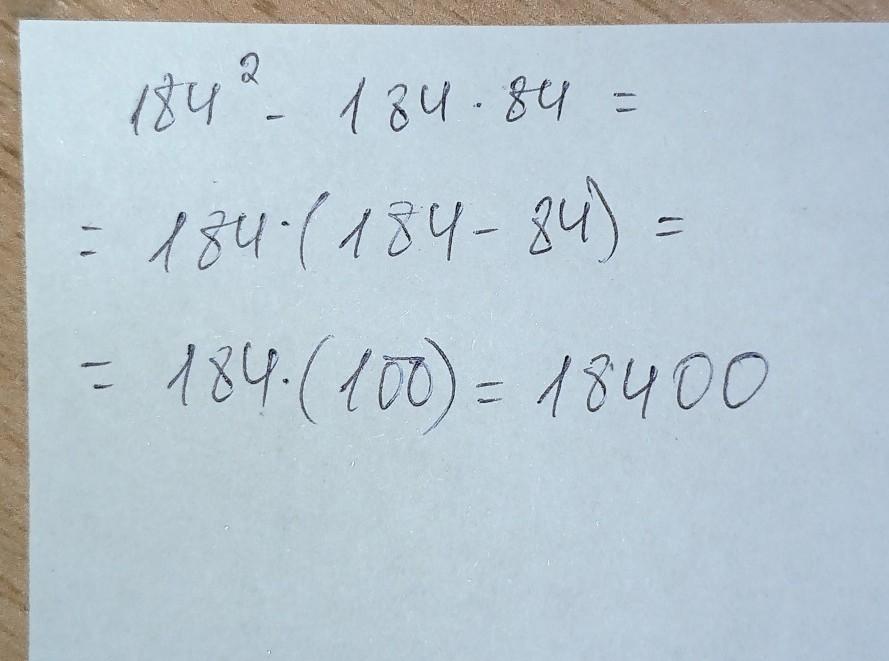 184² - 184 · 84 =
= 184 · (184 - 84) =
= 184 · (100) = 18400